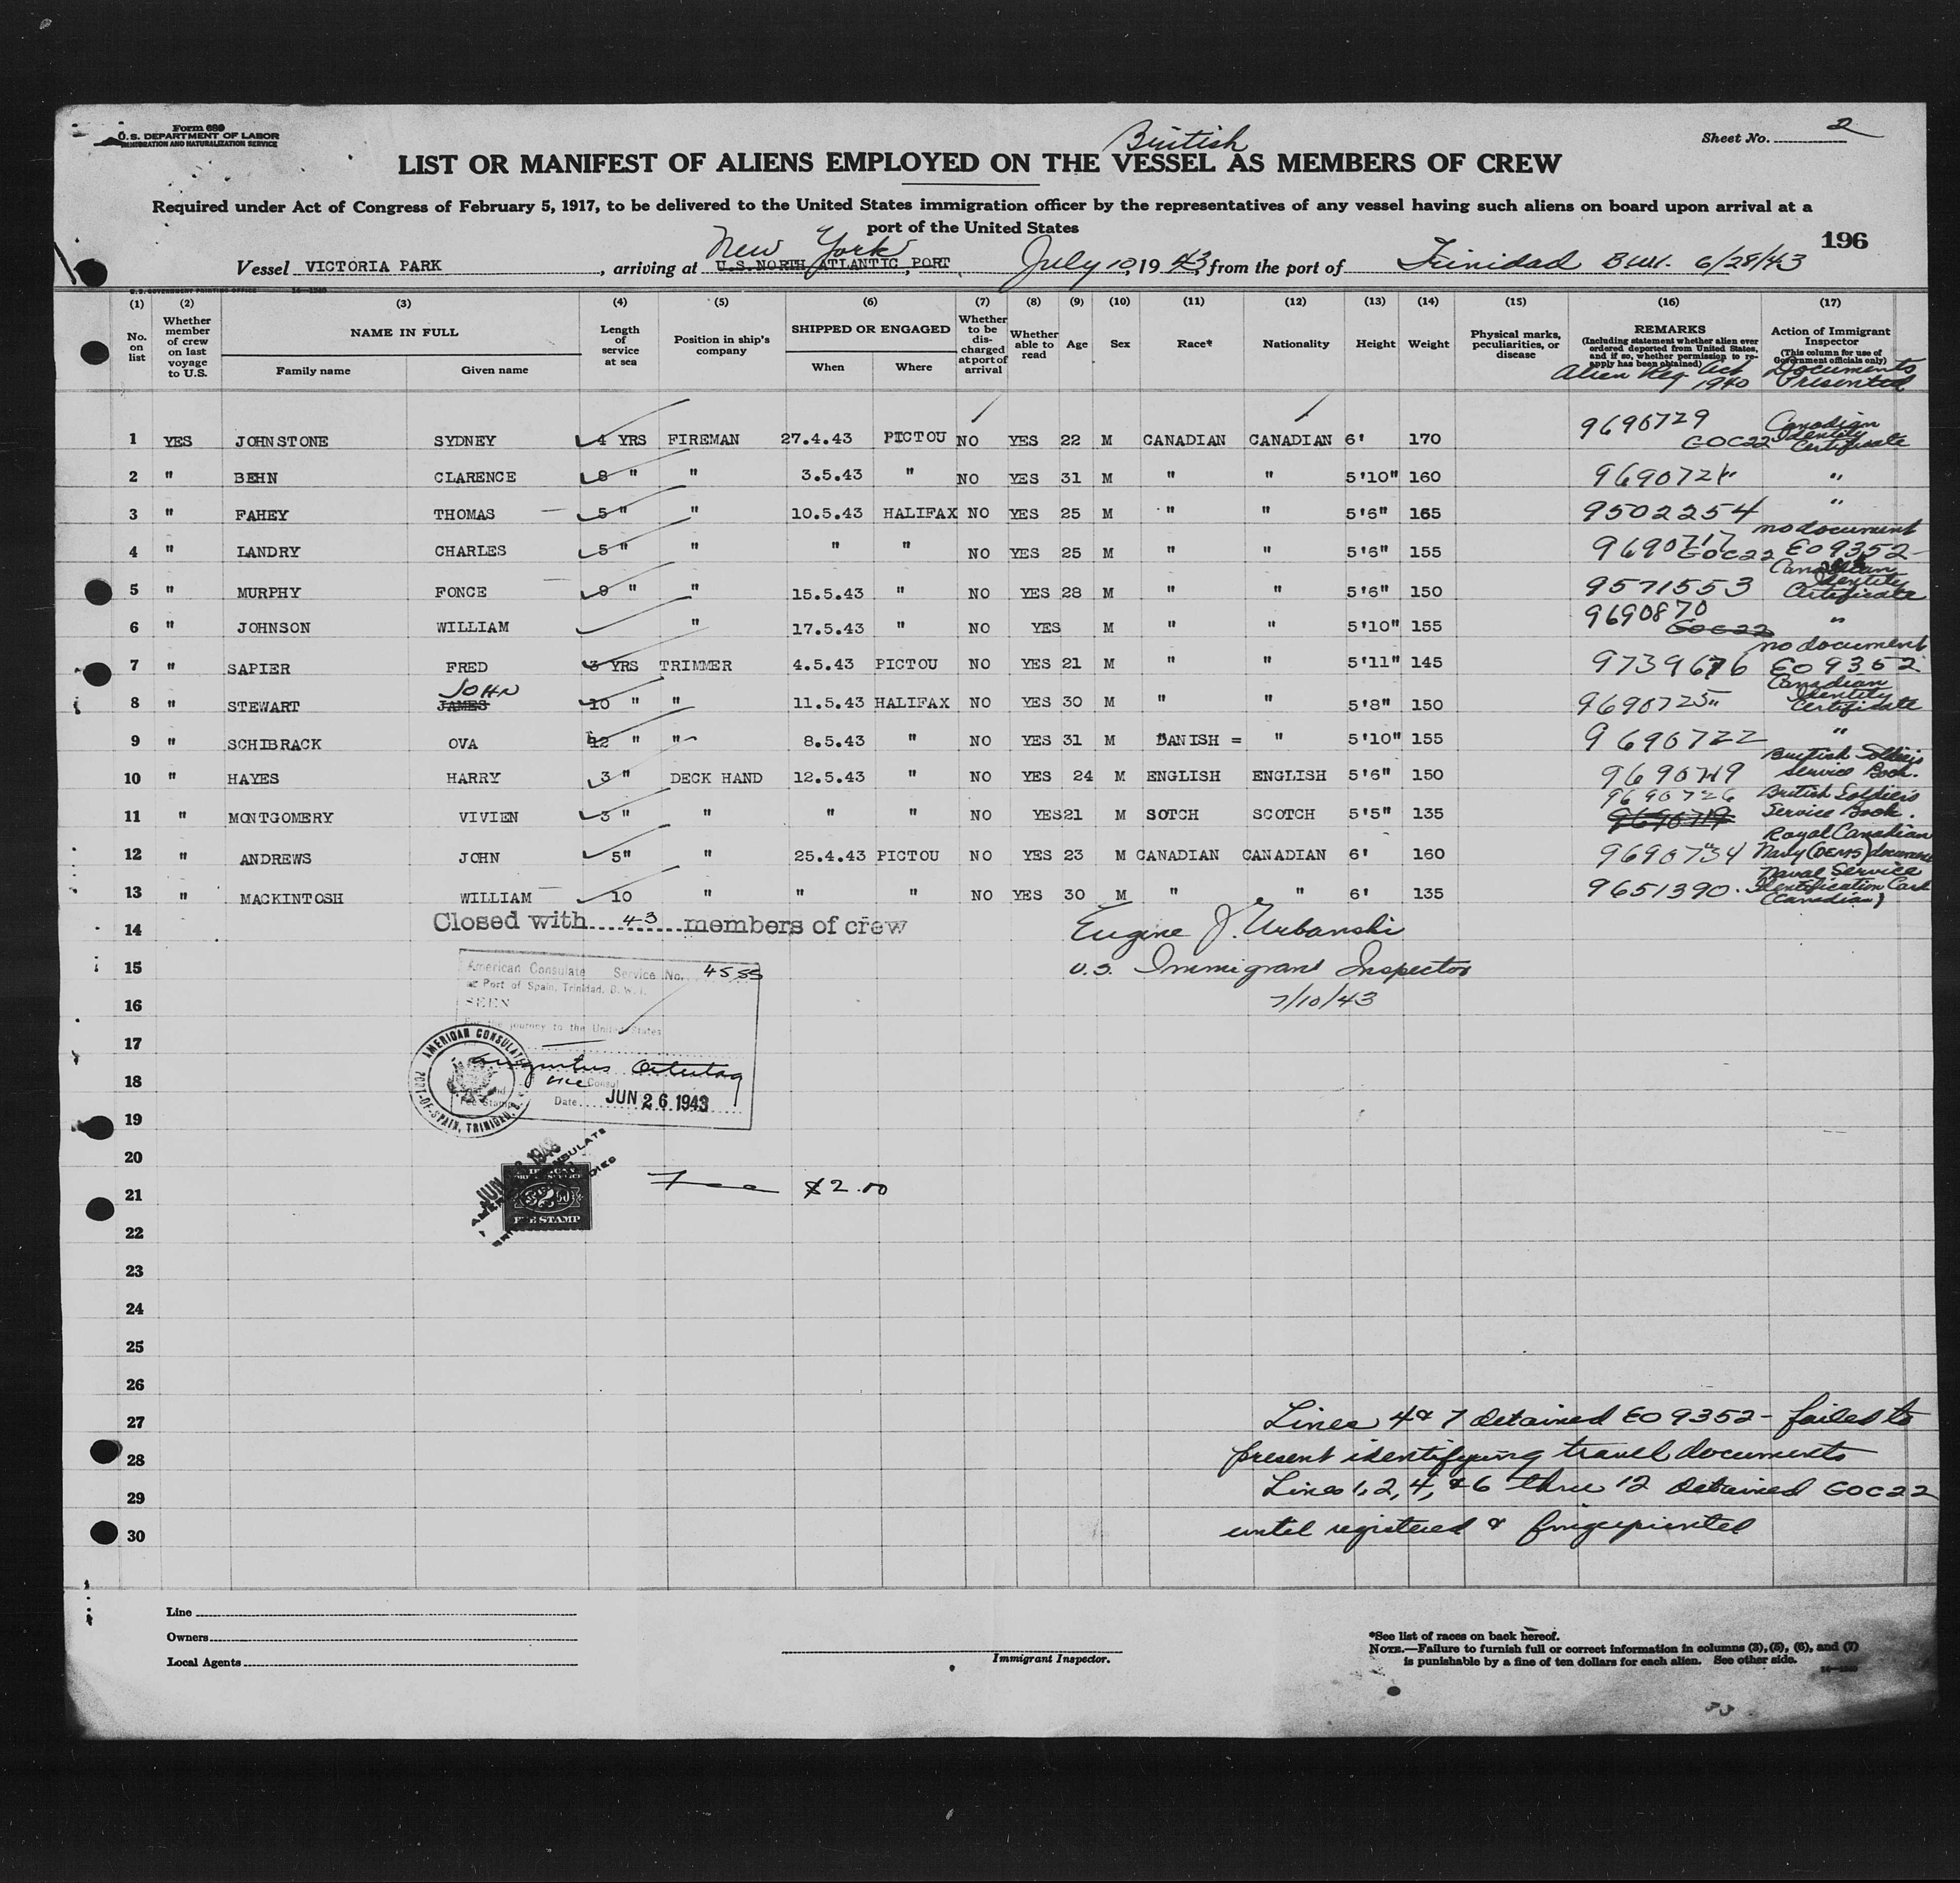 Form 689
U.S. DEPARTMENT OF LABOR
IMMIGRATION AND NATURALIZATION SERVICE
Sheet No. 2
British
LIST OR MANIFEST OF ALIENS EMPLOYED ON THE VESSEL AS MEMBERS OF CREW
Required under Act of Congress of February 5, 1917, to be delivered to the United States immigration officer by the representatives of any vessel having such aliens on board upon arrival at a
port of the United States
196
New York
Vessel VICTORIA PARK, arriving at U.S. NORTH ATLANTIC PORT, July 10, 1943, from the port of Trinidad B.W.I. 6/28/43
U.S. GOVERNMENT PRINTING OFFICE
(1) (2) (3) (4) (5) (6) (7) (8) (9) (10) (11) (12) (13) (14) (15) (16) (17)
No. on list
Whether member of crew on last voyage to U.S.
NAME IN FULL
Family name Given name
Length of service at sea
Position in ship's company
SHIPPED OR ENGAGED
When Where
Whether to be discharged at port of arrival
Whether able to read
Age
Sex
Race*
Nationality
Height
Weight
Physical marks, peculiarities, or disease
REMARKS
(Including statement whether alien ever ordered deported from United States, and if so, whether permission to reapply has been obtained)
Alien Reg Act 1940
Action of Immigrant Inspector
(This column for use of Government officials only)
Documents Presented
1 YES JOHNSTONE SYDNEY 4 YRS FIREMAN 27.4.43 PICTOU NO YES 22 M CANADIAN CANADIAN 6' 170 9690729 GOC22 Canadian Identity Certificate
2 " BEHN CLARENCE 8 " " 3.5.43 " NO YES 31 M " " 5'10" 160 969072 " "
3 " FAHEY THOMAS 5 " " 10.5.43 HALIFAX NO YES 25 M " " 5'6" 165 9502254 "
4 " LANDRY CHARLES 5 " " " " NO YES 25 M " " 5'6" 155 9690717 GOC22 no document EO 9352
5 " MURPHY FONCE 9 " " 15.5.43 " NO YES 28 M " " 5'6" 150 9571553 Canadian Identity Certificate
6 " JOHNSON WILLIAM " 17.5.43 " NO YES M " " 5'10" 155 9690870 GOC22 "
7 " SAPIER FRED 3 YRS TRIMMER 4.5.43 PICTOU NO YES 21 M " " 5'11" 145 9739676 no document EO 9352
8 " STEWART JAMES JOHN 10 " " 11.5.43 HALIFAX NO YES 30 M " " 5'8" 150 9690725 " Canadian Identity Certificate
9 " SCHIBRACK OVA 12 " " 8.5.43 " NO YES 31 M DANISH = " 5'10" 155 9690722 "
10 " HAYES HARRY 3 " DECK HAND 12.5.43 " NO YES 24 M ENGLISH ENGLISH 5'6" 150 9690719 British Soldiers Service Book.
11 " MONTGOMERY VIVIEN 3 " " " " NO YES 21 M SOTCH SCOTCH 5'5" 135 9690726 9690719 British Soldiers Service Book.
12 " ANDREWS JOHN 5" " 25.4.43 PICTOU NO YES 23 M CANADIAN CANADIAN 6' 160 9690734 Royal Canadian Navy (DEMS) document
13 " MACKINTOSH WILLIAM 10 " " " NO YES 30 M " " 6' 135 9651390. Naval Service Identification Card (Canadian)
14 Closed with 43 members of crew Eugene J. Urbanski
15 U.S. Immigrant Inspector
16 7/10/43
American Consulate Service No. 4555
Port of Spain, Trinidad, B.W.I.
SEEN
For the journey to the United States
Vice Consul
Fee Stamp Date JUN 26 1943
AMERICAN CONSULATE
PORT-OF-SPAIN, TRINIDAD, B.
17
18
19
20
21 Fee $2.00
FEE STAMP
22
23
24
25
26
27 Lines 4 & 7 detained EO 9352 - failed to
28 present identifying travel documents
29 Lines 1, 2, 4, & 6 thru 12 detained GOC22
30 until registered & fingerprinted
Line
Owners
Local Agents
Immigrant Inspector.
*See list of races on back hereof.
NOTE.—Failure to furnish full or correct information in columns (3), (5), (6), and (7)
is punishable by a fine of ten dollars for each alien. See other side.